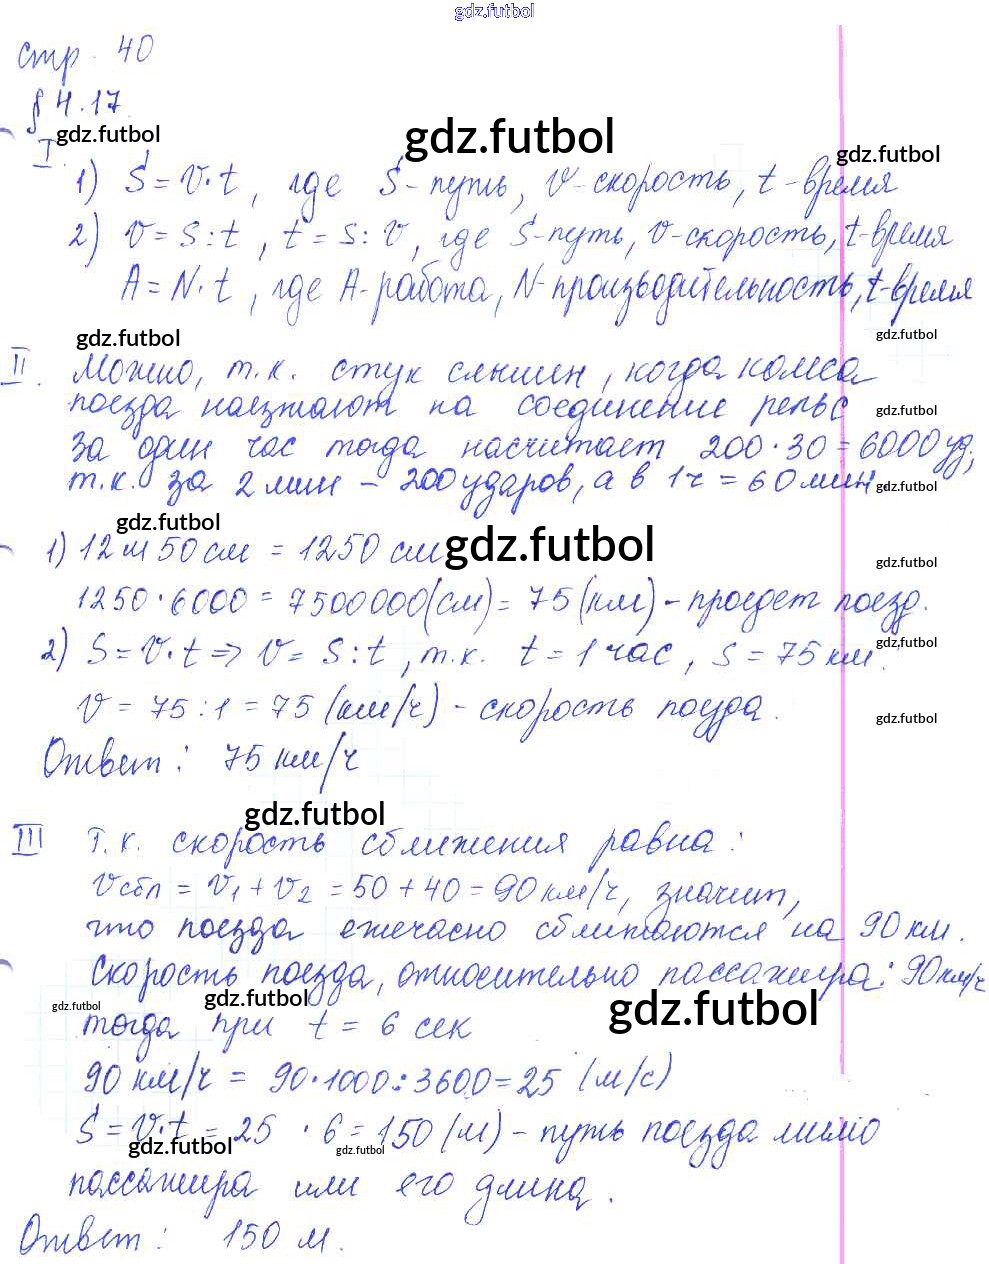 gdz.futbol
стр. 40
§ 4.17
gdz.futbol
gdz.futbol
gdz.futbol
I. 1) S = v·t, где S - путь, v - скорость, t - время
2) v = s : t, t = s : v, где S - путь, v - скорость, t - время
A = N·t, где A - работа, N - производительность, t - время
gdz.futbol
gdz.futbol
II. Можно, т.к. стук слышен, когда колеса
поезда наезжают на соединение рельс
gdz.futbol
за один час тогда насчитает 200·30 = 6000 уд,
т.к. за 2 мин - 200 ударов, а в 1 ч = 60 мин.
gdz.futbol
gdz.futbol
1) 12 м 50 см = 1250 см
gdz.futbol
gdz.futbol
1250·6000 = 7500000 (см) = 75 (км) - проедет поезд.
2) S = v·t ⇒ v = S : t, т.к. t = 1 час, s = 75 км.
gdz.futbol
v = 75 : 1 = 75 (км/ч) - скорость поезда.
gdz.futbol
Ответ: 75 км/ч
gdz.futbol
III Т.к. скорость сближения равна:
vсбл = v₁ + v₂ = 50 + 40 = 90 км/ч, значит,
что поезда ежечасно сближаются на 90 км.
Скорость поезда, относительно пассажира: 90 км/ч
gdz.futbol
gdz.futbol
gdz.futbol
тогда при t = 6 сек
90 км/ч = 90·1000:3600 = 25 (м/с)
S = v·t = 25 · 6 = 150 (м) - путь поезда мимо
gdz.futbol
gdz.futbol
пассажира или его длина.
Ответ: 150 м.